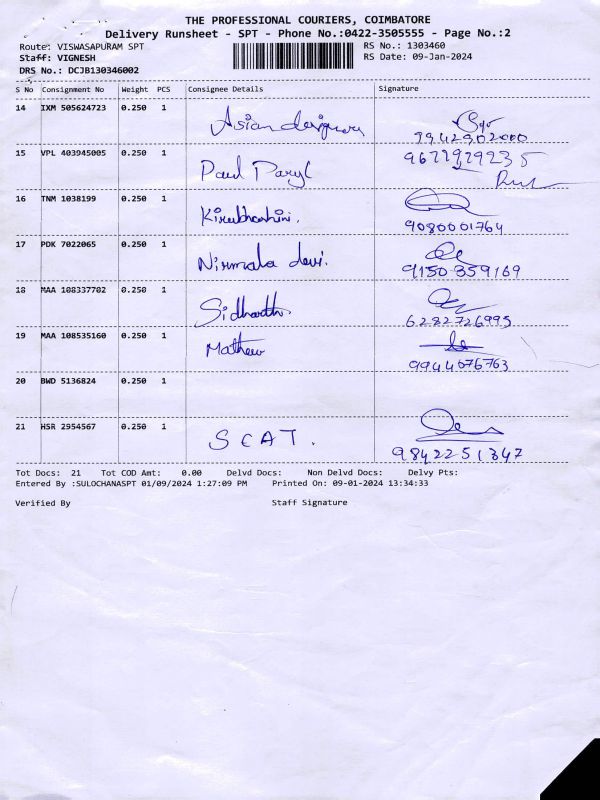 THE PROFESSIONAL COURIERS, COIMBATORE
Delivery Runsheet - SPT - Phone No.:0422-3505555 - Page No.:2
Route: VISWASAPURAM SPT RS No.: 1303460
Staff: VIGNESH RS Date: 09-Jan-2024
DRS No.: DCJB130346002
S No Consignment No Weight PCS Consignee Details Signature
14 IXM 505624723 0.250 1 Asian designers
9942902000
15 VPL 403945005 0.250 1 Paul Daryl
16 TNM 1038199 0.250 1 Kirubhashini.
9080001764
17 PDK 7022065 0.250 1 Nirmala devi.
9150359169
18 MAA 108337702 0.250 1 Sidharth.
6282726995
19 MAA 108535160 0.250 1 Mathew
9944076763
20 BWD 5136824 0.250 1
21 HSR 2954567 0.250 1 SCAT.
9842251347
Tot Docs: 21 Tot COD Amt: 0.00 Delvd Docs: Non Delvd Docs: Delvy Pts:
Entered By :SULOCHANASPT 01/09/2024 1:27:09 PM Printed On: 09-01-2024 13:34:33
Verified By Staff Signature